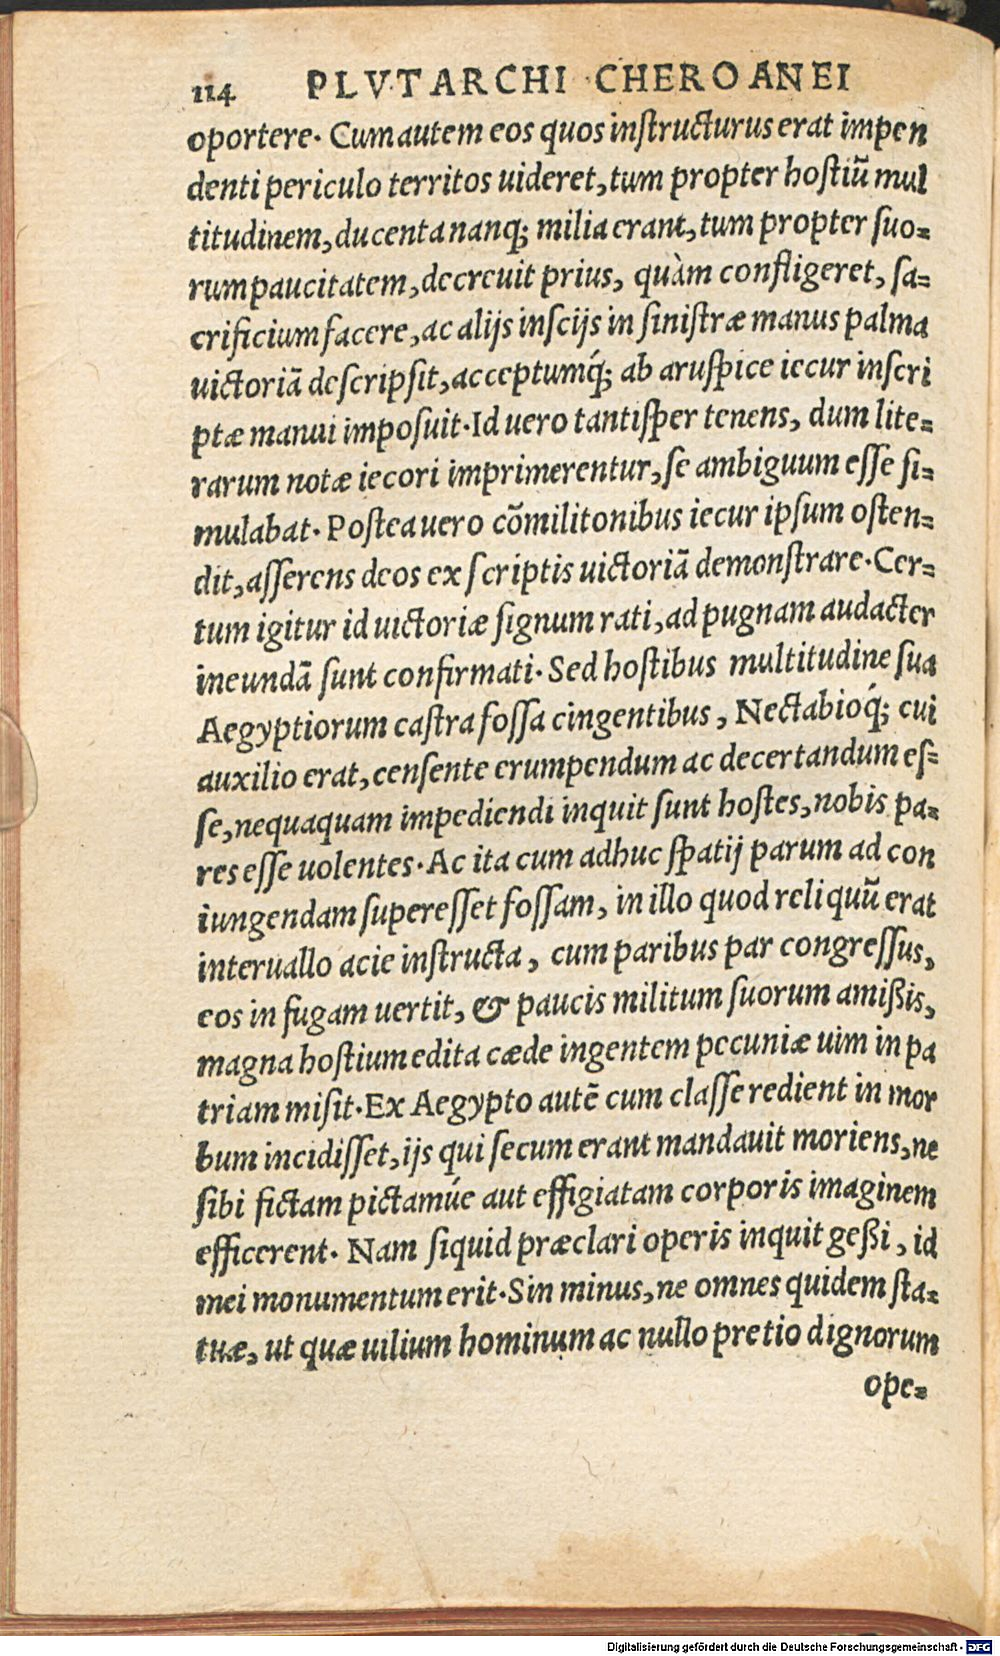 114 PLVTARCHI CHEROANEI
oportere. Cum autem eos quos instructurus erat impen
denti periculo territos uideret, tum propter hostiũ mul
titudinem, ducenta nanq; milia erant, tum propter suo=
rum paucitatem, decreuit prius, quàm confligeret, sa=
crificium facere, ac alijs inscijs in sinistræ manus palma
uictoriã descripsit, acceptumq́; ab aruspice iecur inscri
ptæ manui imposuit. Id uero tantisper tenens, dum lite=
rarum notæ iecori imprimerentur, se ambiguum esse si=
mulabat. Postea uero cõmilitonibus iecur ipsum osten=
dit, asserens deos ex scriptis uictoriã demonstrare. Cer=
tum igitur id uictoriæ signum rati, ad pugnam audacter
ineundã sunt confirmati. Sed hostibus multitudine sua
Aegyptiorum castra fossa cingentibus, Nectabioq́; cui
auxilio erat, censente erumpendum ac decertandum es=
se, nequaquam impediendi inquit sunt hostes, nobis pa=
res esse uolentes. Ac ita cum adhuc spatij parum ad con
iungendam superesset fossam, in illo quod reliquũ erat
interuallo acie instructa, cum paribus par congressus,
eos in fugam uertit, & paucis militum suorum amißis,
magna hostium edita cæde ingentem pecuniæ uim in pa
triam misit. Ex Aegypto autẽ cum classe redient in mor
bum incidisset, ijs qui secum erant mandauit moriens, ne
sibi fictam pictamúe aut effigiatam corporis imaginem
efficerent. Nam siquid præclari operis inquit geßi, id
mei monumentum erit. Sin minus, ne omnes quidem sta=
tuæ, ut quæ uilium hominum ac nullo pretio dignorum
ope=
Digitalisierung gefördert durch die Deutsche Forschungsgemeinschaft - DFG